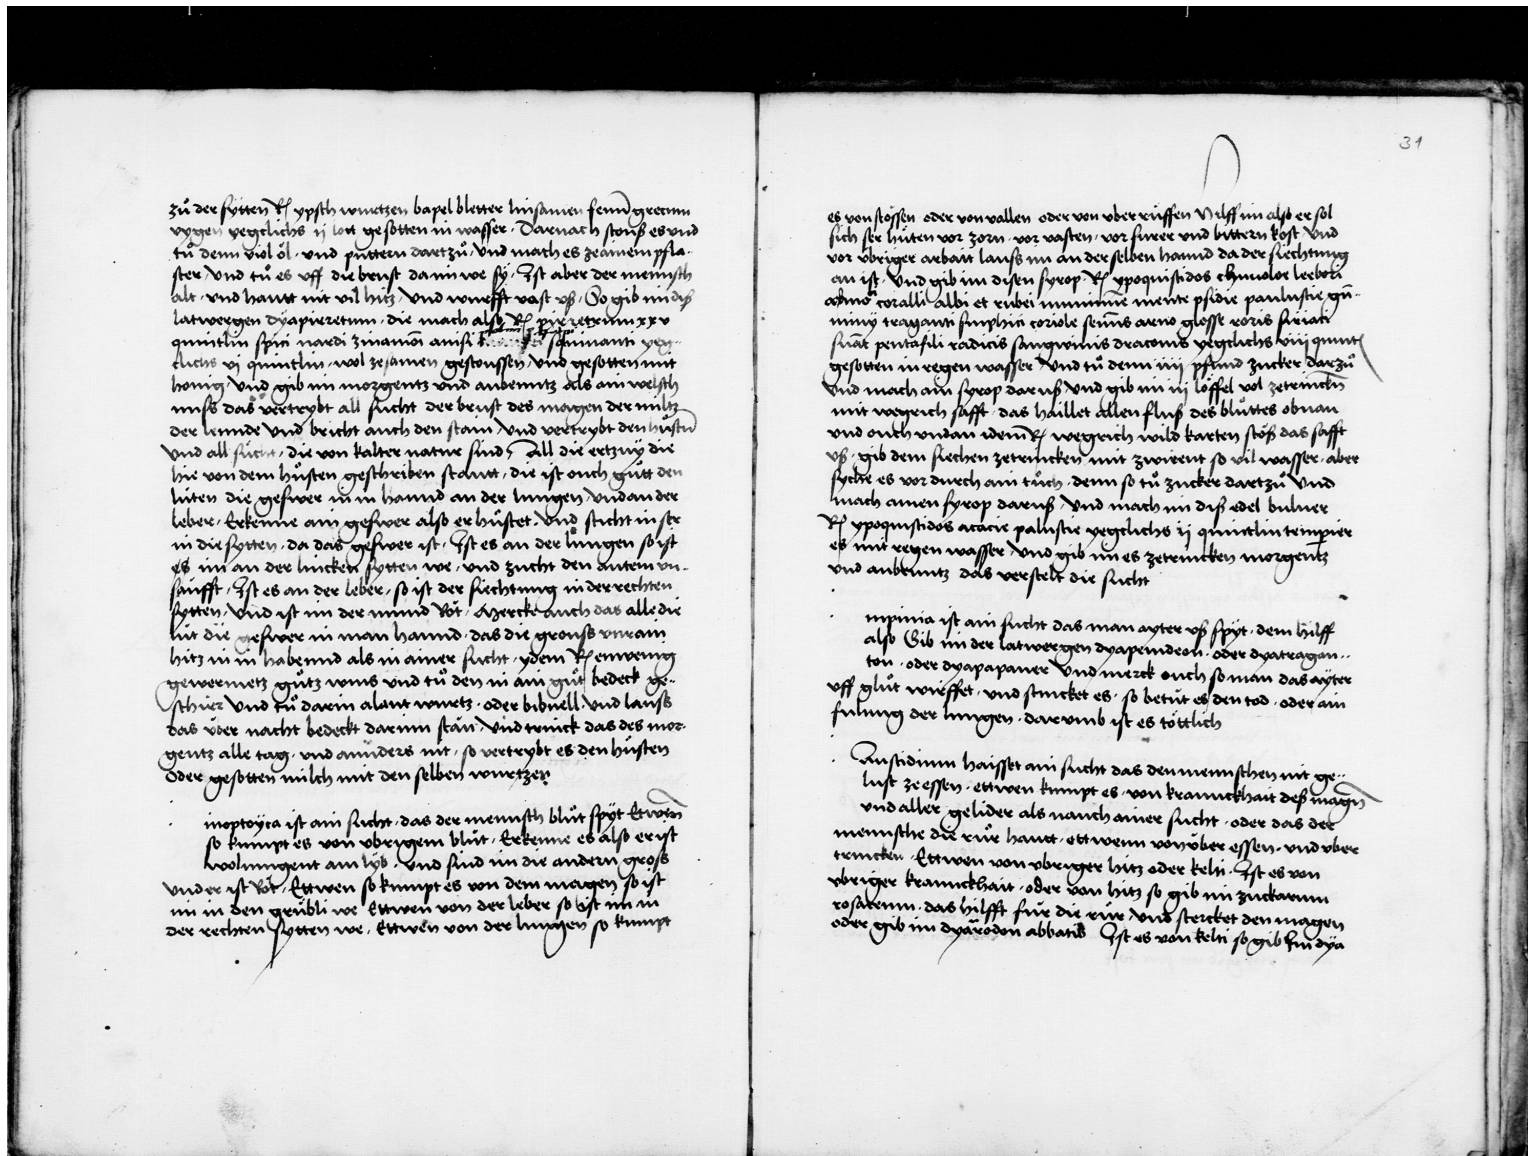 zuͦ der sytten Rͥ ypsch wurtzen bapel bletter linsamen fenū grecum
vygen yegclichs ij lott gesotten in wasser · Darnach stouß es vnd
tuͦ denn viol oͤl · vnd puttern dartzuͦ · Vnd mach es ze ainem pfla-
ster · Vnd tuͦ es vff die brust da im we sy · Ist aber der mennsch
alt · vnd hautt nit vil hitz · Vnd wurfft vast vß · So gib im diß
latwergen dyapieretum · die mach also Rͥ pieretrum xxv
quintlin spici nardi zinamōn anisi squinanti yeg-
clichs vj quintlin · wol zesamen gestoussen · Vnd gesotten mit
honig · Vnd gib im morgentz vnd aubenntz als ain welsch
nuss das vertrybt all sucht der brust des magen der miltz
der lennde Vnd bricht auch den stain · Vnd vertrybt den huͦstn̄
Vnd all sucht · die von kalter natur sind · All die ertzny die
hie von dem huͦsten geschriben stautt · die ist ouch guͦtt den
luten die geswer in in hannd an der lungen · vnd an der
leber · Erkenne ain geswer also er huͦstet · Vnd sticht in ser
in die sytten · da das geswer ist · Ist es an der lungen so ist
es im an der lincken sytten we · vnd zucht den autem vn-
saͤnfft · Ist es an der leber · so ist der siechtung in der rechten
sytten · Vnd ist im der mund Rot · Mercke auch das alle die
lut die geswer in man hannd · das die grouss vnrain
hitz in in habennd als in ainer sucht · ydem Rͥ en wenig
gewermetz guͦtz wins vnd tuͦ den in ain guͦt bedeck ge-
schirr Vnd tuͦ darin alant wurtz · oder bibnell Vnd lauss
das vber nacht bedeckt darinn stan · Vnd trinck das des mor-
gentz alle tag · vnd annders nit · so vertrybt es den huͦsten
oder gesotten milch mit den selben wurtzen
inoptoyca ist ain sucht · das der mennsch bluͦt spyt Ettwen̄
so kumpt es von vbrigem bluͦt · Erkenne es also er ist
wolmugent am lyb · vnd sind im die andern gross
Vnd er ist Rot · Ettwen so kumpt es von dem magen so ist
im in den gruͤbli we Ettwen von der leber so ist im in
der rechten sytten we · Ettwen von der lungen so kumpt
31
es von stoͤssen oder von vallen oder von vber ruͤffen Hilff im also er sol
sich ser huͤten vor zorn · vor vasten · vor surer vnd bittern kost Vnd
vor vbriger arbait lauss im an der selben hannd da der siechtung
an ist · Vnd gib im disen syrop · Rͥ ypoquistidos
coralli albi et rubei mente psidie palustie gū-
miny traganti roris siriaci
pentafili radicis sangwinis draconis yegclichs viij quint
gesotten in regen wasser Vnd tuͦ denn iiij pfund zucker darzuͦ
Vnd mach ain syrop daruß · Vnd gib im iij loͤffel vol zetrincken̄
mit wegrich safft · das haillet allen fluß des bluͦttes obnan
vnd ouch vndan idem Rͥ wegrich wild karten stoͤß das safft
vß · gib dem siechen zetrincken mit zwirent so vil wasser · aber
syche es vor durch ain tuͦch · denn so tuͦ zucker dartzuͦ Vnd
mach ainen syrop daruß · Vnd mach im diß edel bulver
Rͥ ypoquistidos acacie palustie yegclichs ij quintlin tempier
es mit regen wasser · Vnd gib im es zetrincken morgentz
vnd aubenntz das verstelt die sucht
mpinia ist ain sucht das man ayter vß spyt · dem hilff
also Gib im der latwergen dyapenideon · oder dyatragan-
ton · oder dyapapauer Vnd merck ouch so man das ayter
vff gluͦt wirffet · vnd stincket es · so betut es den tod · oder ain
fulung der lungen · darumb ist es toͤttlich
Austidium haisset ain sucht das den mennschen nit ge-
lust ze essen · ettwen kumpt es · von kranckhait deß magen̄
vnd aller gelider als nauch ainer sucht · oder das der
mennsche die ruͦr hautt · ettwenn von vber essen · vnd vber
trincken · Ettwen von vbriger hitz oder kelti · Ist es von
vbriger kranckhait · oder von hitz so gib im zuckarum
rosaceum · das hilfft fuͤr die ruͦr · Vnd stercket den magen
oder gib im dyarodon abbatis Ist es von kelti so gib im dya